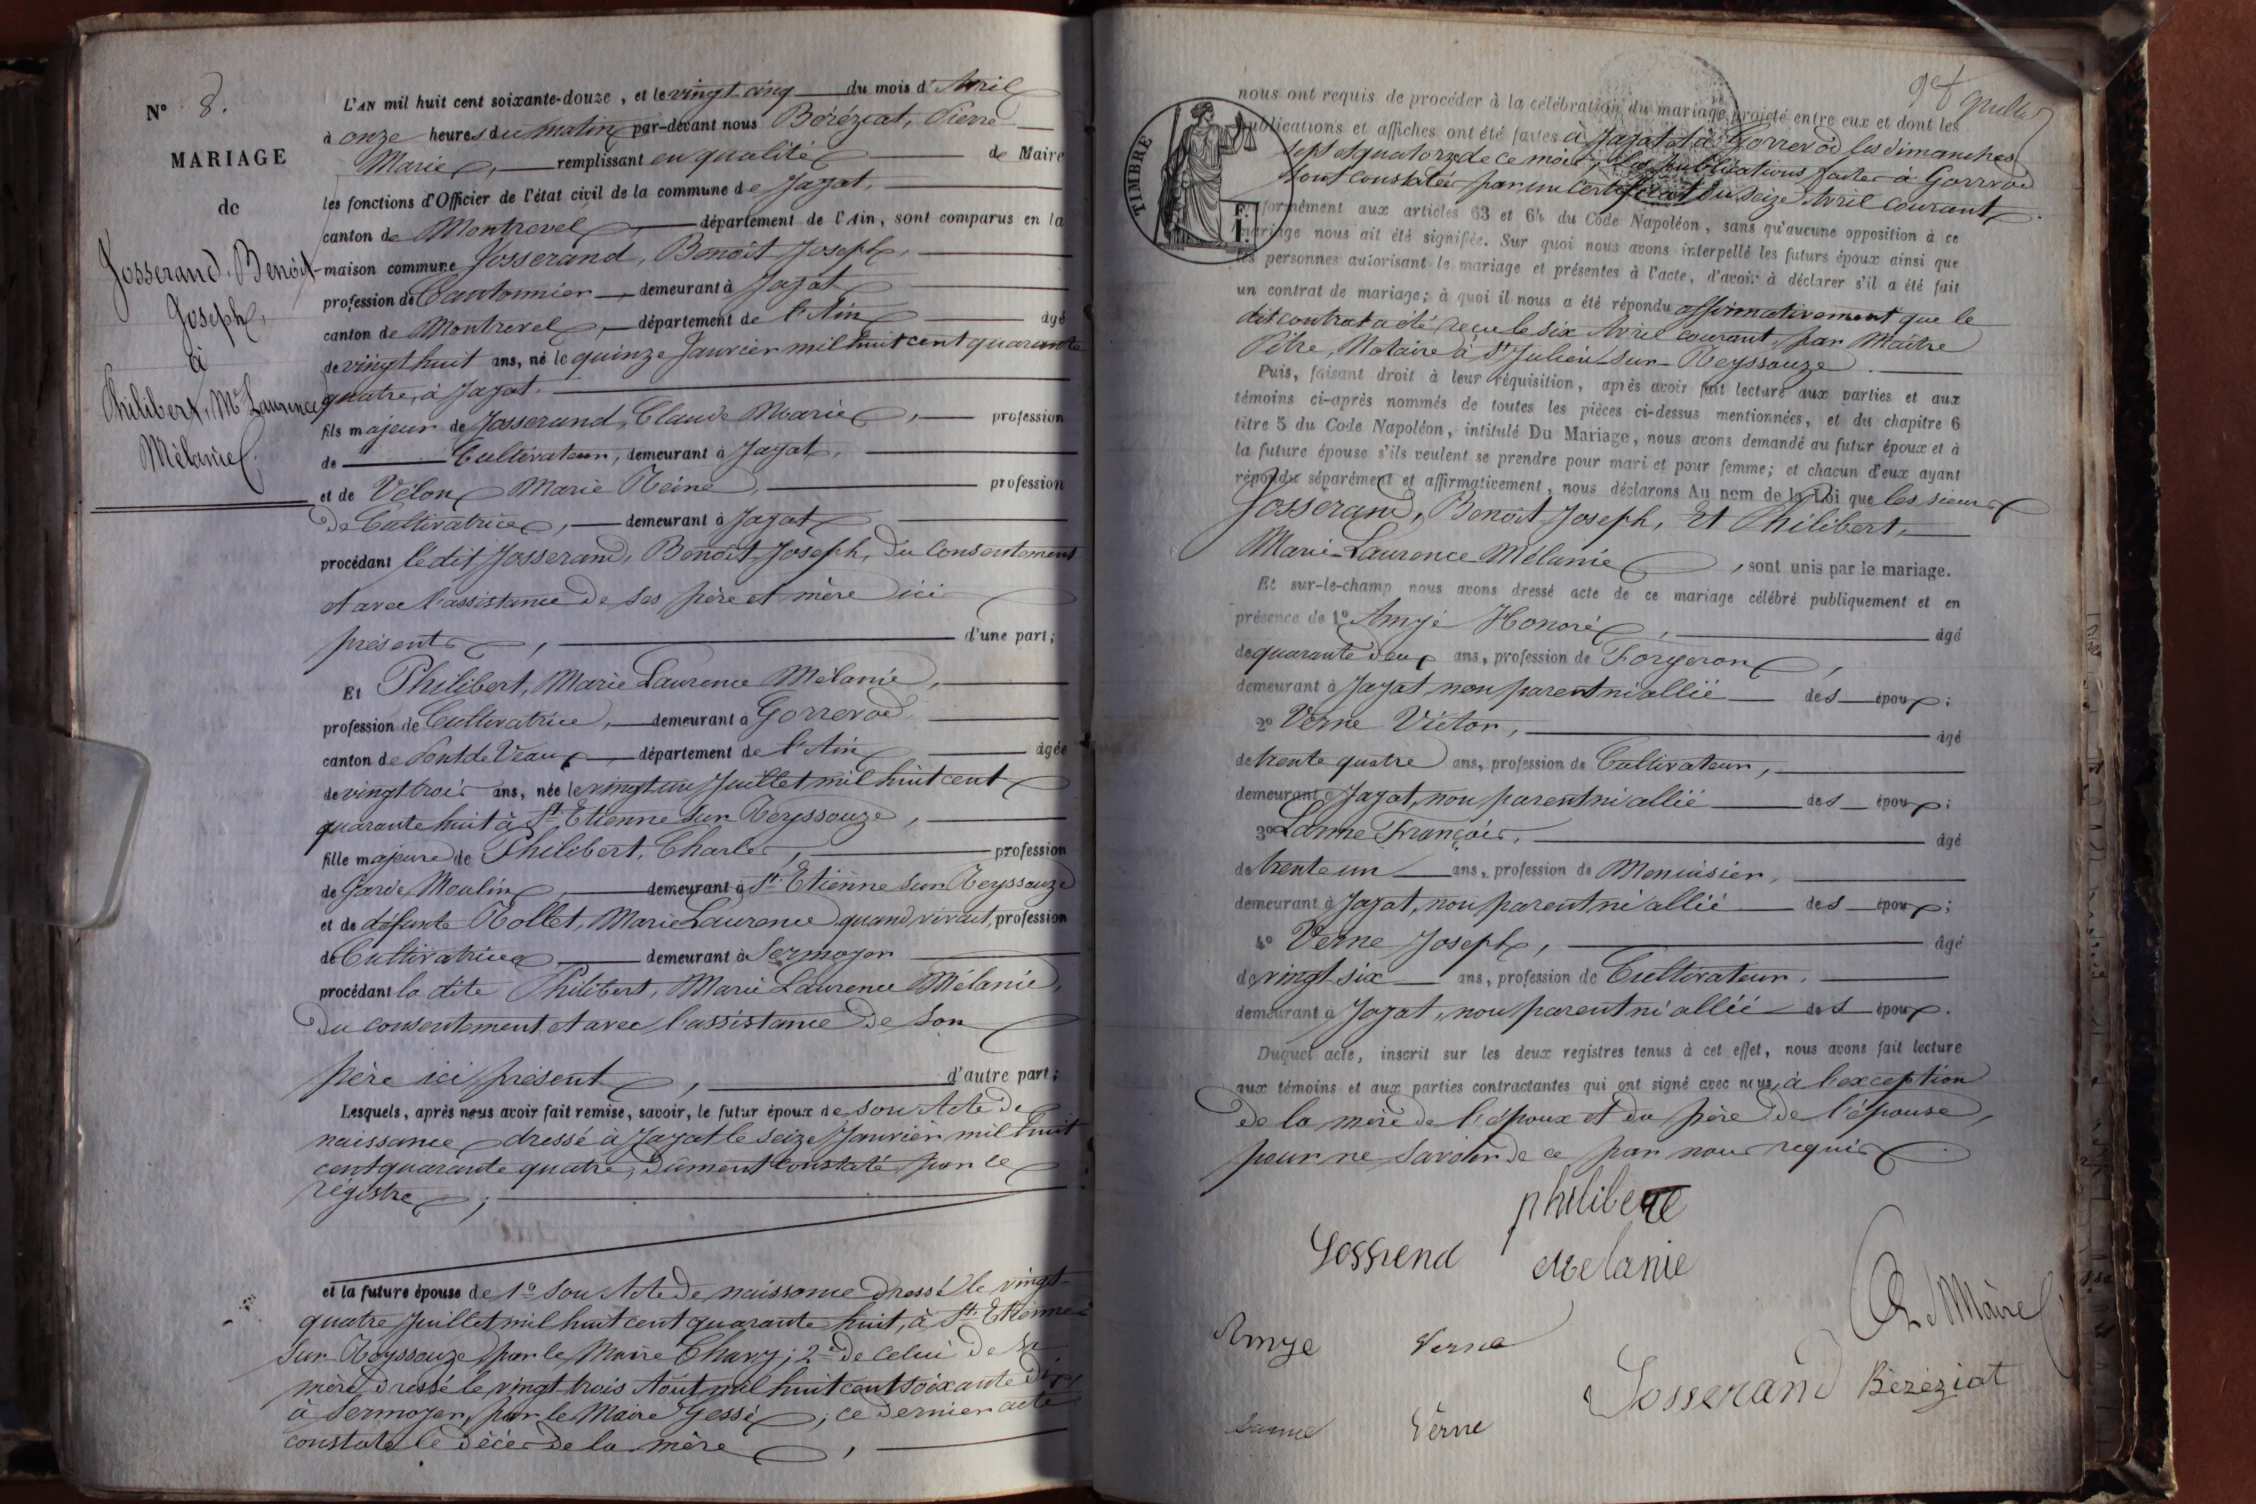 N° 8.
MARIAGE
de
Josserand, Benoit
Joseph,
à
Philibert, Mie Laurence
Mélanie.
L'AN mil huit cent soixante-douze, et le vingt cinq du mois d'Avril
à onze heures du matin par-devant nous Béréziat, Pierre
Marie, remplissant en qualité de Maire
les fonctions d'Officier de l'état civil de la commune de Jayat,
canton de Montrevel, département de l'Ain, sont comparus en la
maison commune Josserand, Benoit Joseph,
profession de Cantonnier, demeurant à Jayat
canton de Montrevel, département de l'Ain âgé
de vingt huit ans, né le quinze Janvier mil huit cent quarante
quatre, à Jayat.
fils majeur de Josserand, Claude Marie, profession
de Cultivateur, demeurant à Jayat,
et de Vélon Marie Reine, profession
de Cultivatrice, demeurant à Jayat
procédant le dit Josserand, Benoit Joseph, du consentement
et avec l'assistance de ses père et mère ici
présents, d'une part;
Et Philibert, Marie Laurence Mélanie,
profession de Cultivatrice, demeurant à Gorrevod
canton de Pont de Vaux, département de l'Ain âgée
de vingt trois ans, née le vingt un Juillet mil huit cent
quarante huit à St Etienne sur Reyssouze,
fille majeure de Philibert, Charles, profession
de Garde Moulin demeurant à St Etienne sur Reyssouze
et de défunte Rollet, Marie Laurence quand vivait, profession
de Cultivatrice demeurant à Sermoyer
procédant la dite Philibert, Marie Laurence Mélanie,
du consentement et avec l'assistance de son
père ici présent, d'autre part;
Lesquels, après nous avoir fait remise, savoir, le futur époux de son Acte de
naissance dressé à Jayat le seize Janvier mil huit
cent quarante quatre, dûment constaté par ce
régistre;
et la future épouse de 1° son Acte de naissance dressé le vingt-
quatre Juillet mil huit cent quarante huit, à St. Etienne
sur Reyssouze par le Maire Chavy; 2° de celui de sa
mère, dressé le vingt trois Août mil huit cent soixante dix
à Sermoyer, par le Maire Gessé; ce dernier acte
constate le décès de la mère,
TIMBRE
F. I.
nous ont requis de procéder à la célébration du mariage projeté entre eux et dont les
publications et affiches ont été faites à Jayat et à Gorrevod les dimanches
sept et quatorze de ce mois; les publications faites à Gorrevod
sont constatées par un certificat du seize Avril courant,
conformément aux articles 63 et 64 du Code Napoléon, sans qu'aucune opposition à ce
mariage nous ait été signifiée. Sur quoi nous avons interpellé les futurs époux ainsi que
les personnes autorisant le mariage et présentes à l'acte, d'avoir à déclarer s'il a été fait
un contrat de mariage; à quoi il nous a été répondu affirmativement que le
dit contrat a été reçu le six Avril courant, par Maître
Pitre, Notaire à St Julien-sur-Reyssouze.
Puis, faisant droit à leur réquisition, après avoir fait lecture aux parties et aux
témoins ci-après nommés de toutes les pièces ci-dessus mentionnées, et du chapitre 6
titre 5 du Code Napoléon, intitulé Du Mariage, nous avons demandé au futur époux et à
la future épouse s'ils veulent se prendre pour mari et pour femme; et chacun d'eux ayant
répondu séparément et affirmativement, nous déclarons Au nom de la Loi que les sieurs
Josserand, Benoit Joseph, Et Philibert,
Marie-Laurence Mélanie, sont unis par le mariage.
Et sur-le-champ nous avons dressé acte de ce mariage célébré publiquement et en
présence de 1° Amyé Honoré, âgé
de quarante deux ans, profession de Forgeron,
demeurant à Jayat non parent ni allié des époux;
2° Verne Victor, âgé
de trente quatre ans, profession de Cultivateur,
demeurant à Jayat, non parent ni allié des époux;
3° Lame François, âgé
de trente un ans, profession de Menuisier,
demeurant à Jayat, non parent ni allié des époux;
4° Verne Joseph, âgé
de vingt six ans, profession de Cultivateur.
demeurant à Jayat, non parent ni allié des époux.
Duquel acte, inscrit sur les deux registres tenus à cet effet, nous avons fait lecture
aux témoins et aux parties contractantes qui ont signé avec nous, à l'exception
de la mère de l'époux et du père de l'épouse,
pour ne savoir de ce par nous requis.
philibert
Josserend Melanie
Le Maire
Amye Verne
Josserand Béréziat
Lame Verne